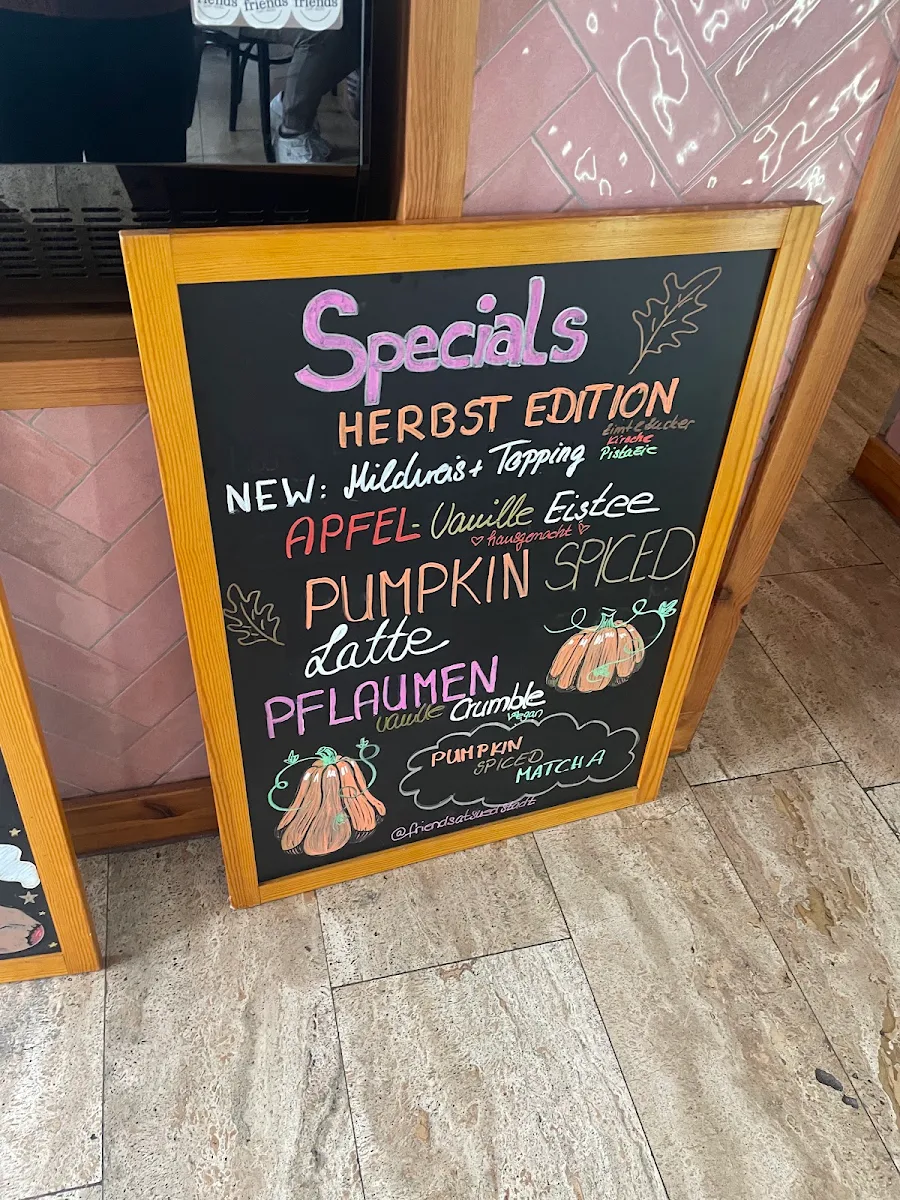 friends friends friends
Specials
HERBST EDITION
NEW: Milchreis + Topping
Zimt & Zucker
Kirsche
Pistazie
APFEL- Vanille Eistee
♡ hausgemacht ♡
PUMPKIN SPICED
Latte
PFLAUMEN
Vanille Crumble
Vegan
PUMPKIN
SPICED
MATCHA